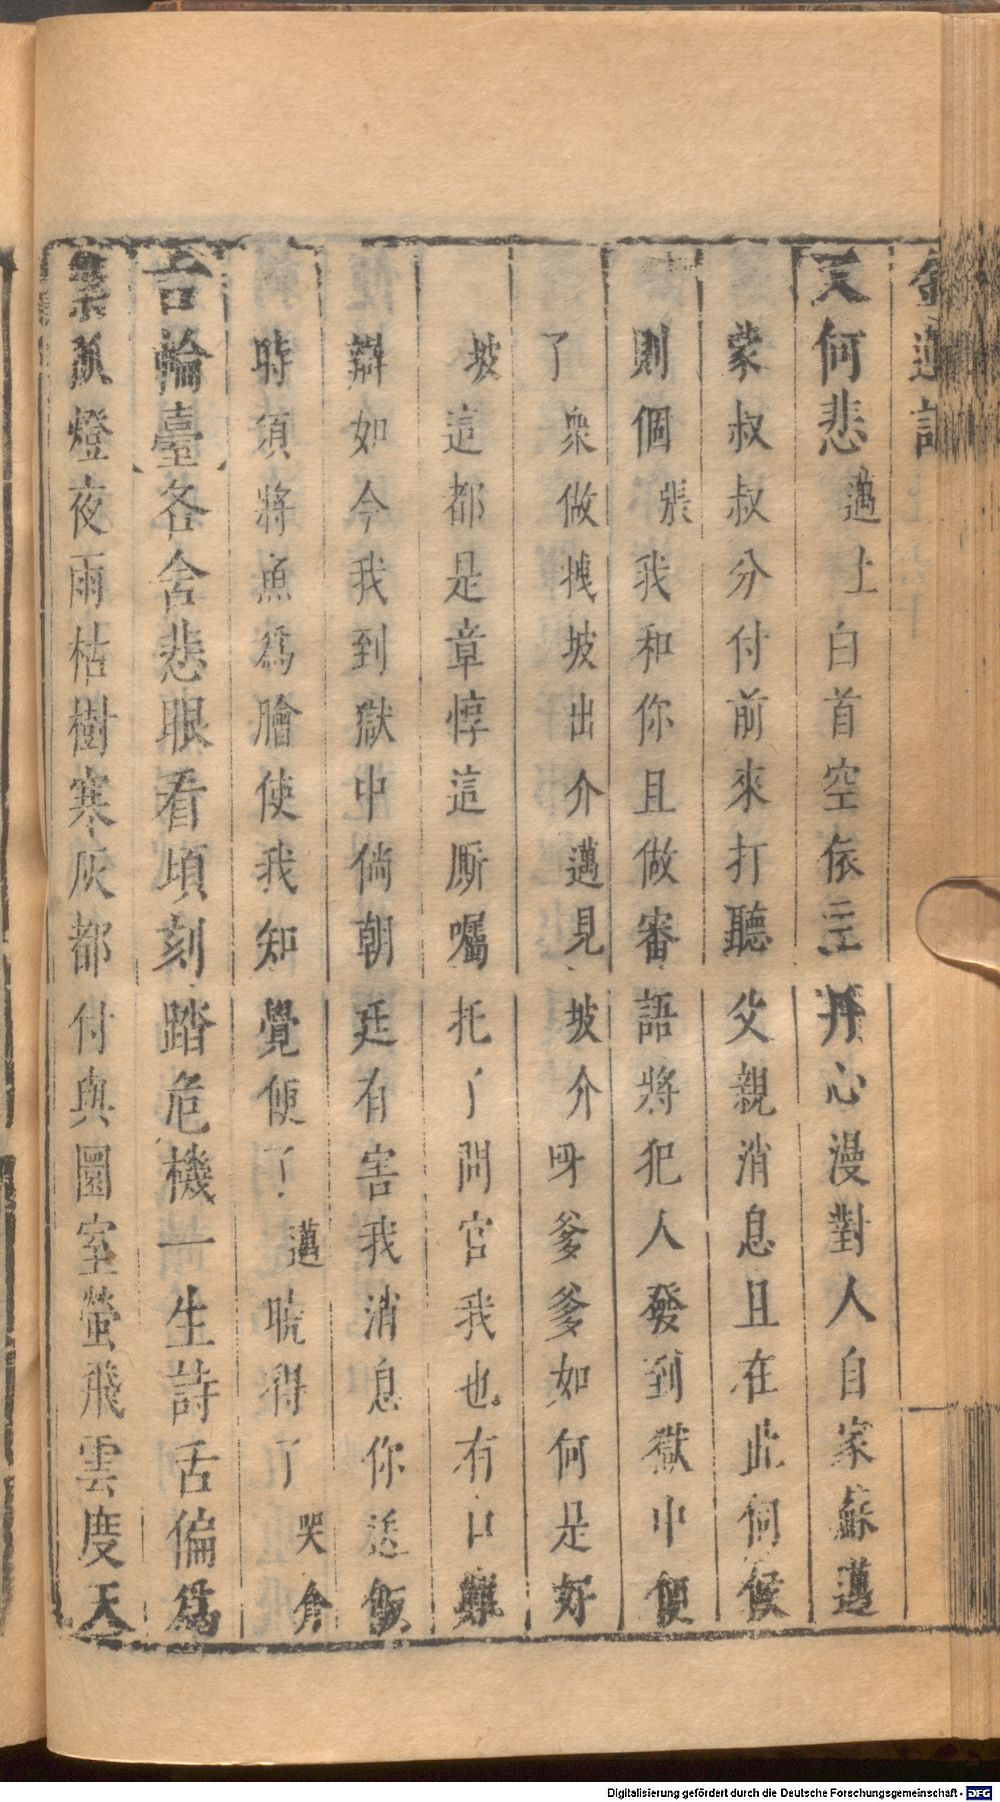 金蓮記
天何悲邁上白首空依三王丹心漫對人自家蘇邁
蒙叔叔分付前來打聽父親消息且在此伺候
則個張我和你且做審語將犯人發到獄中便
了衆做拽坡出介邁見坡介呀爹爹如何是好
坡這都是章惇這厮囑托了問官我也有口難
辯如今我到獄中倘朝廷有害我消息你送飯
時須將魚爲膾使我知覺便了邁曉得了哭介
古輪臺各含悲眼看頃刻踏危機一生詩舌偏爲
累孤燈夜雨枯樹寒灰都付與圜室螢飛雲度天
Digitalisierung gefördert durch die Deutsche Forschungsgemeinschaft - DFG